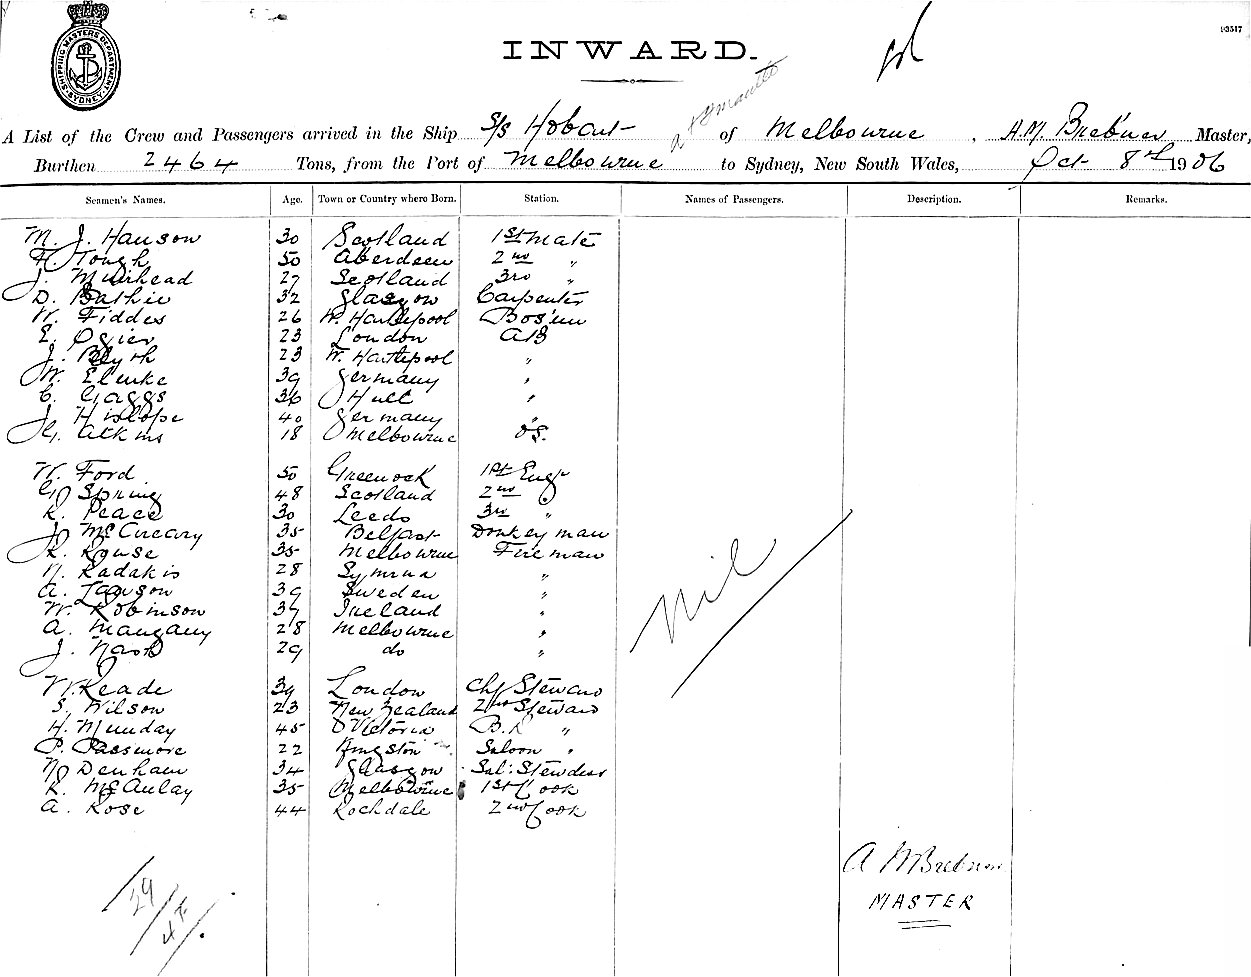 SHIPPING MASTERS DEPARTMENT SYDNEY
INWARD.
A List of the Crew and Passengers arrived in the Ship S/s Hobart of Melbourne, A.M. Brebner Master,
Burthen 2464 Tons, from the Port of Melbourne to Sydney, New South Wales, Oct 8th 1906
Seamen's Names. Age. Town or Country where Born. Station. Names of Passengers. Description. Remarks.
M. J. Hanson 30 Scotland 1st Mate
Tough 50 Aberdeen 2nd "
J. Muirhead 27 Scotland 3rd "
D. Bathie 32 Glasgow Carpenter
W. Fiddes 26 W. Hartlepool Bos'un
E. Ogier 23 London AB
J. Blyth 23 W. Hartlepool "
W. 39 Germany "
C. Gaggs 36 Hull "
J. Hislope 40 Germany "
G. Atkins 18 Melbourne OS.
W. Ford 50 Greenock 1st Engr
G. Spring 48 Scotland 2nd "
R. Peace 30 Leeds 3rd "
J. McCreary 35 Belfast Donkeyman
R. Rouse 35 Melbourne Fireman
N. Radakis 28 Symrna "
A. 39 Sweden "
W. Robinson 37 Ireland "
A. Mangany 28 Melbourne "
J. Nash 29 do "
Nil
W. Reade 39 London Chf Steward
S. Wilson 23 New Zealand 2nd Steward
H. Munday 45 Victoria B.R "
P. Passmore 22 Kingston Saloon "
Denham 34 Glasgow Sal: Stewdess
R. McAulay 35 Melbourne 1st Cook
A. Rose 44 Rochdale 2nd Cook
A M Brebner
MASTER
29